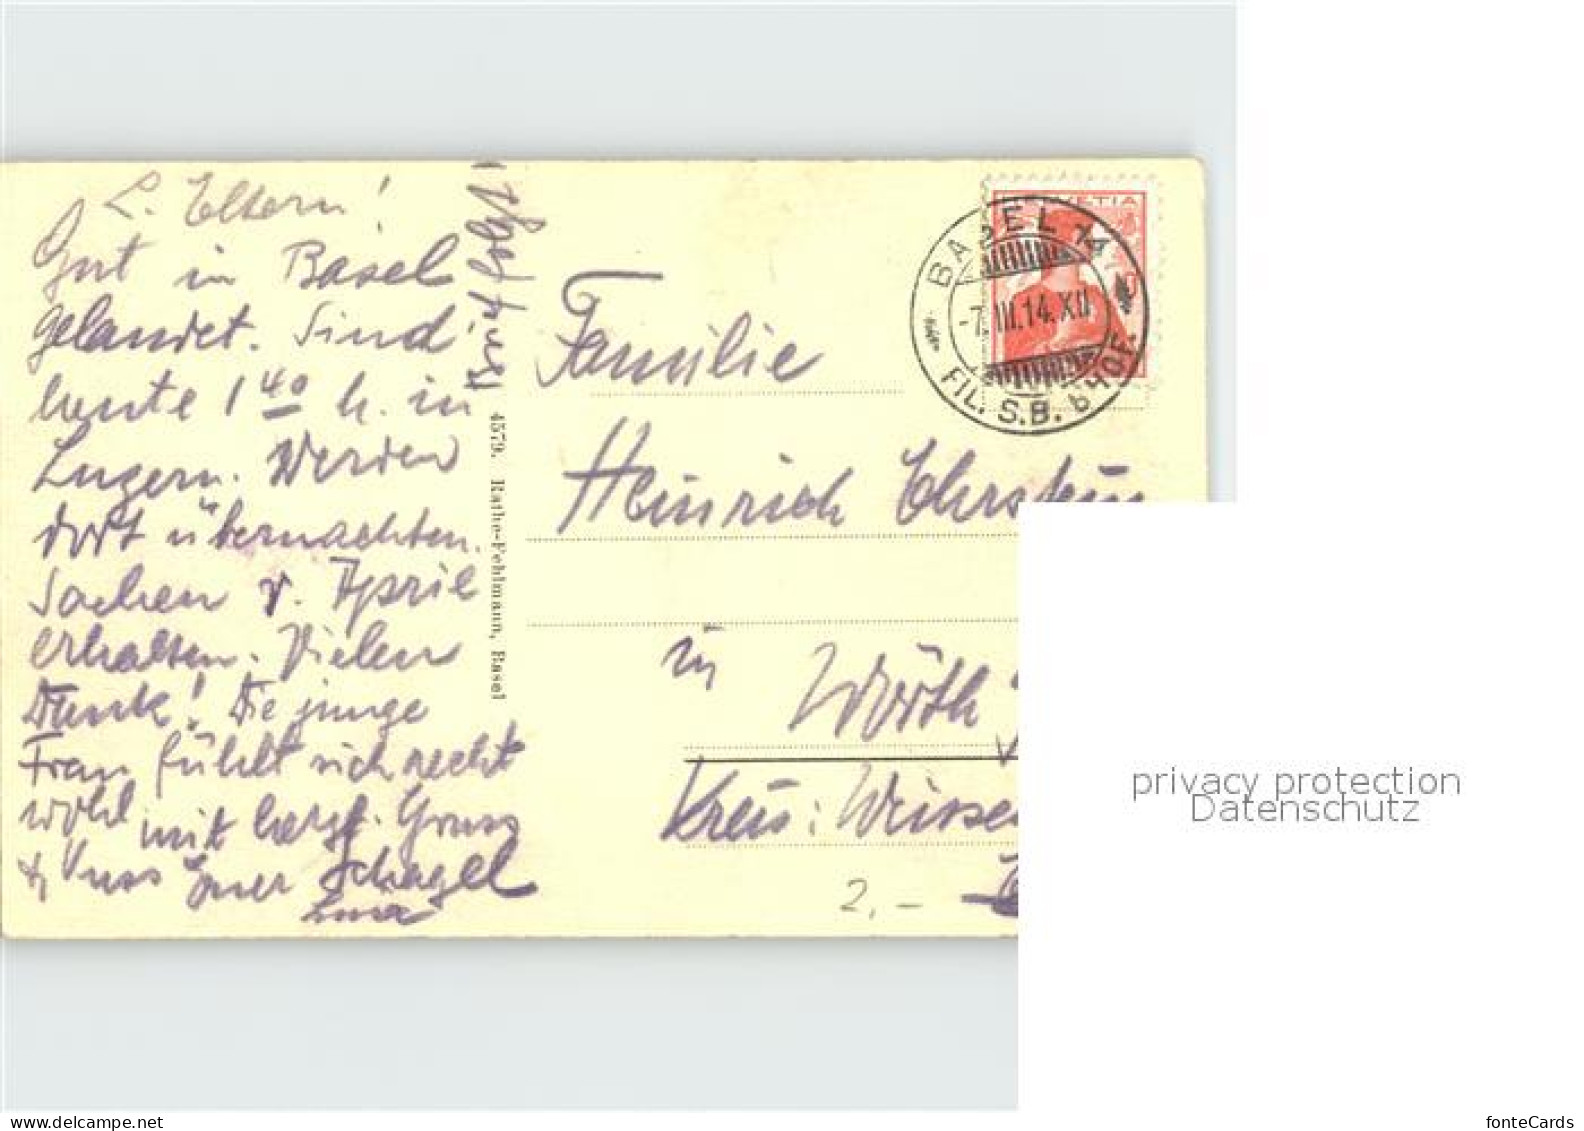 L. Eltern!
Gut in Basel
gelandet. Sind
heute 1 40 h. in
Luzern. Werden
dort übernachten.
Sachen v. April
erhalten. Vielen
Dank! Die junge
Frau fühlt sich recht
wohl mit herzl. Gruss
& Kuss Euer
Brief folgt!
4579. Rathe-Fehlmann, Basel
HELVETIA
BASEL 14
-7.III.14.XII
FIL. S.B. BHOF.
Familie
Heinrich
in Wörth
Kreis: Weissen
2,-
privacy protection
Datenschutz
fonteCards